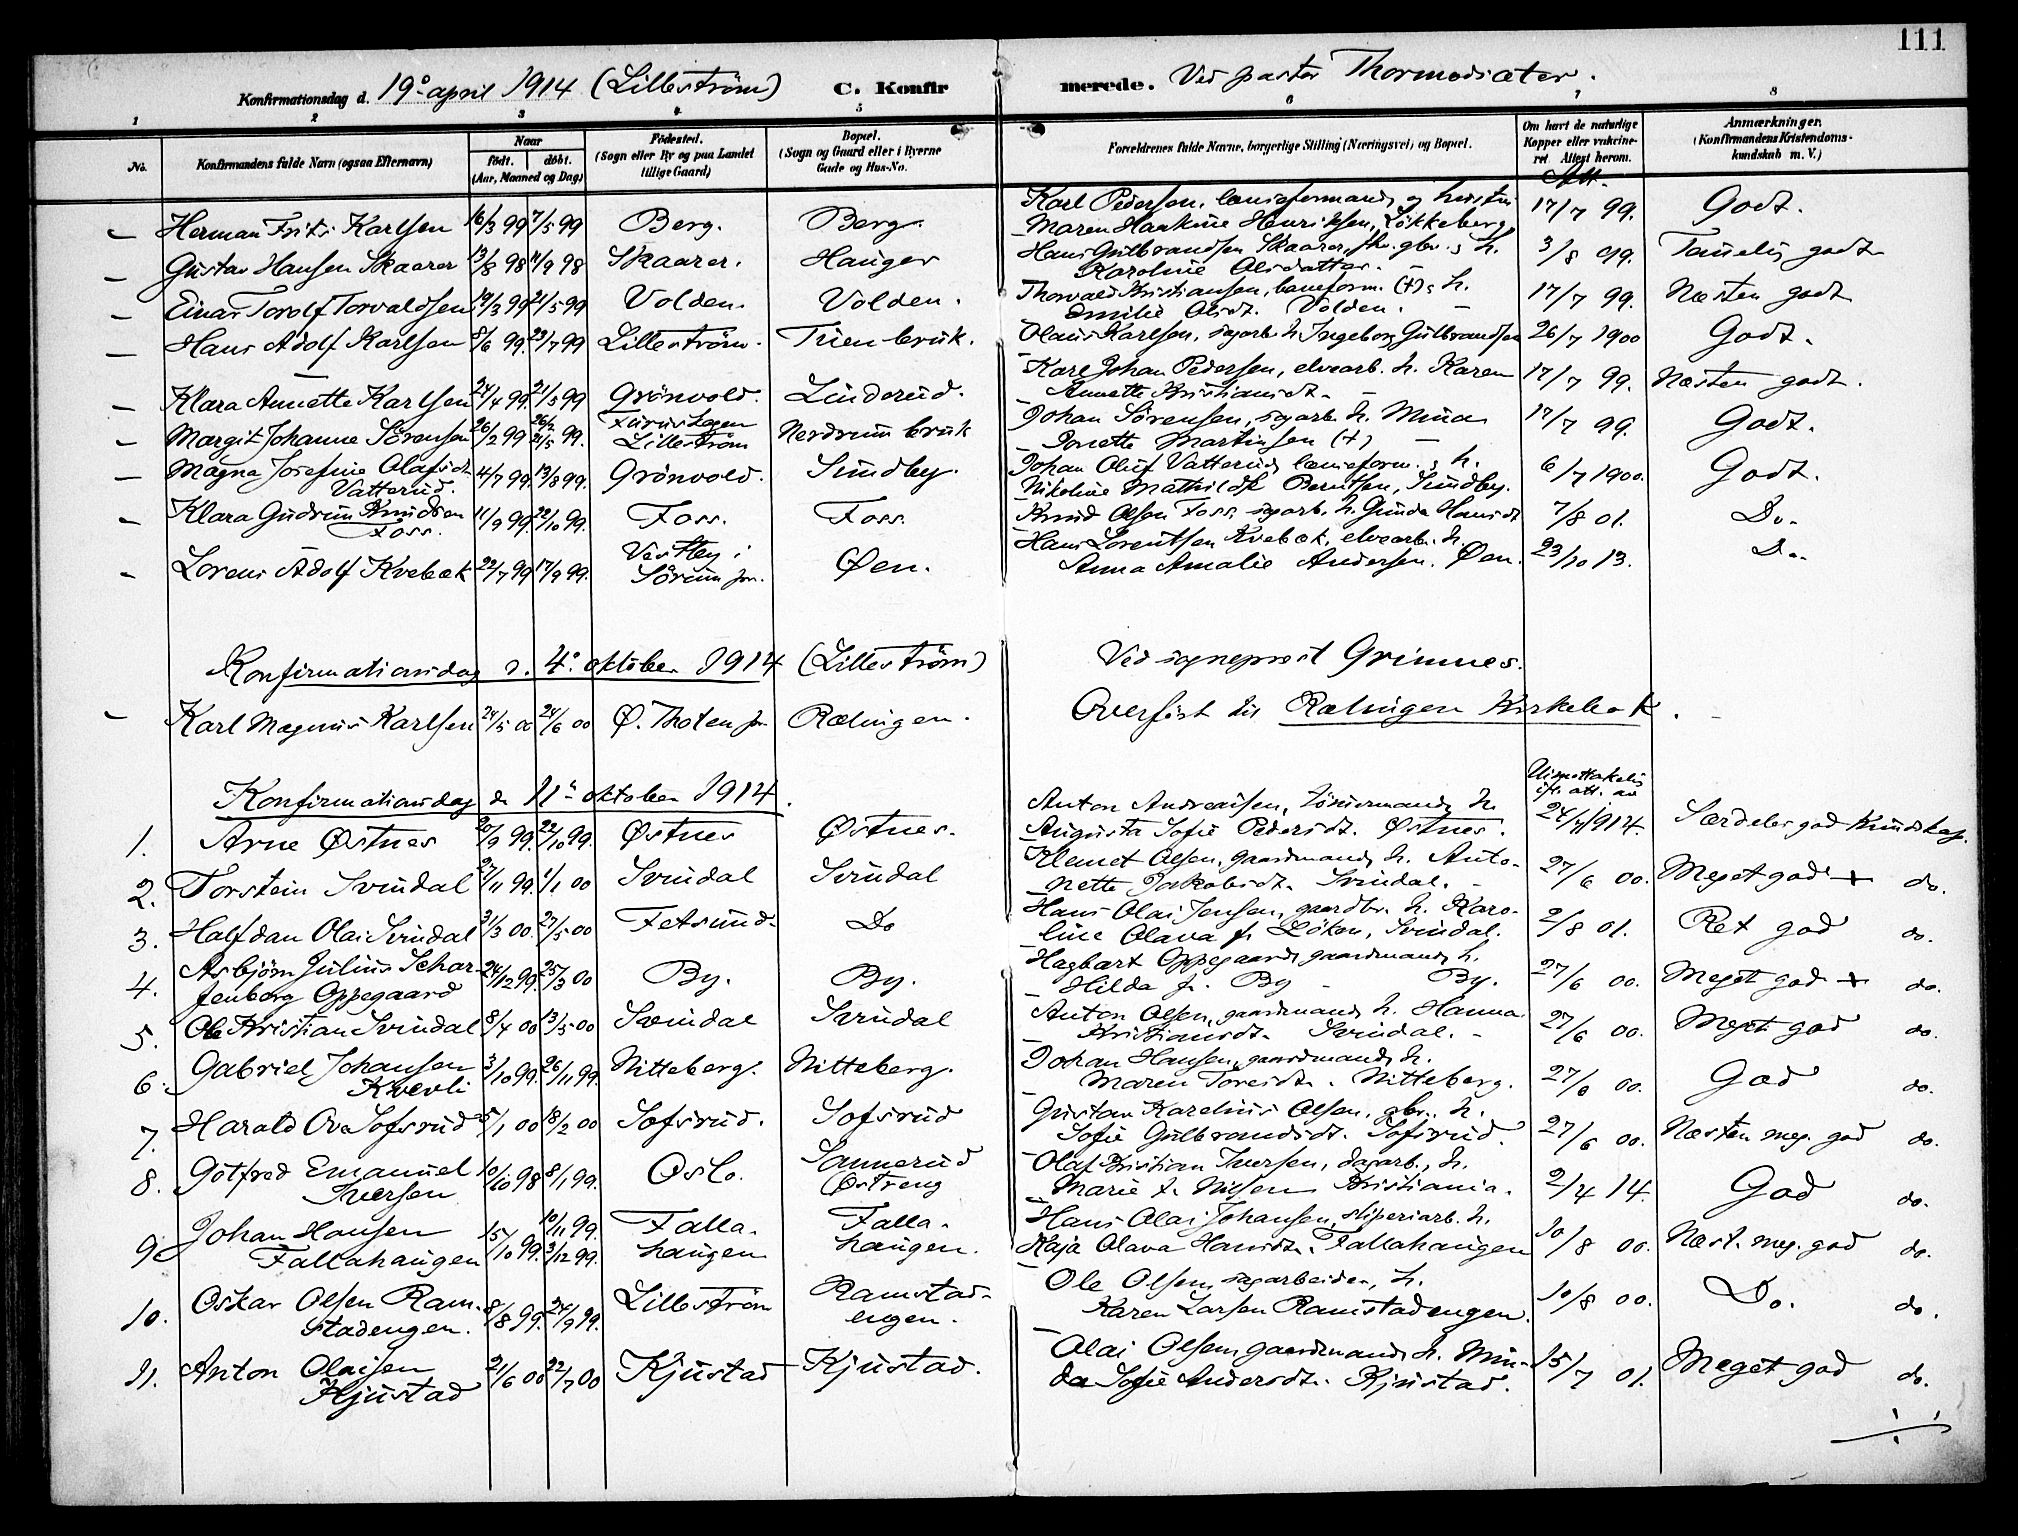 111
Konfirmationsdag d. 19de april 1914 (Lilleström) C. Konfirmerede. Ved pastor Thormodsæter.
1 2 3 4 5 6 7 8
No. Konfirmandens fulde Navn (ogsaa Efternavn) Naar født. døbt. (Aar, Maaned og Dag) Fødested. (Sogn eller By og paa Landet tillige Gaard) Bopæl. (Sogn og Gaard eller i Byerne Gade og Hus-No. Forældrenes fulde Navne, borgerlige Stilling (Næringsvei) og Bopæl. Om havt de naturlige Kopper eller vaccineret. Attest herom. Anmærkninger. (Konfirmandens Kristendomskundskab m. V.)
Att.
– Herman Frits Karlsen 16/3 99 7/5 99 Berg. Berg. Karl Pedersen, lænseformand og hustru
Maren Haakine Henriksen, Løkkeberg 17/7 99. Godt.
– Gustav Hansen Skaarer 13/8 98 11/9 98 Skaarer. Hauger Hans Gulbrandsen Skaarer, fhv. gbr. & h.
Karoline Olsdatter. 3/8 99. Temelig godt
– Einar Torolf Torvaldsen 19/3 99 21/5 99 Volden. Volden. Thorvald Kristiansen, baneform. (+) & h.
Emilie Olsdt. Volden. 17/7 99. Næsten godt
– Hans Adolf Karlsen 8/6 99. 23/7 99 Lilleström. Tuen bruk. Olaus Karlsen, sagarb. h. Ingeborg Gulbrandsen 26/7 1900 Godt.
– Klara Annette Karlsen 24/4 99. 21/5 99 Grönvold. Linderud. Karl Johan Pedersen, elvearb. h. Karen
Annette Kristiansdt. 17/7 99. Næsten godt.
– Margit Johanne Sörensen 26/2 99 21/5 99. Lilleström Nerdrum bruk Johan Sörensen, sagarb. h. Mina
Jonette Martinsen (+) 17/7 99. Godt.
– Magna Josefine Olafsdt.
Vatterud. 4/7 99. 13/8 99. Grönvold. Sundby. Johan Oluf Vatterud lænseform. & h.
Nikoline Mathilde Berntsen, Sundby. 6/7 1900. Godt.
– Klara Gudrun Knudsen
Foss. 11/9 99. 22/10 99. Foss. Foss. Knud Olsen Foss, sagarb. h. Gunda Hansdt 7/8 01. Do.
– Lorens Adolf Kvebæk 22/7 99 17/9 99. Vestby i
Sörum pr. Øen. Hans Lorentsen Kvebæk, elvearb. h.
Anna Amalie Andersen. Øen. 23/10 13. Do.
Konfirmationsdag d. 4de oktober 1914 (Lilleström) Ved sogneprest Grimnes.
– Karl Magnus Karlsen 24/5 00 24/6 00 Ø. Thoten pr. Rælingen. Overført til Rælingen Kirkebok.
Konfirmationsdag d. 11te oktober 1914.
1. Arne Østnes 20/9 99. 22/10 99. Østnes Østnes. Anton Andreassen, tömmermand, h.
Augusta Sofie Pedersdt. Østnes. Uimottakelig ifl. att. av 24/4 1914. Særdeles god Kundskap.
2. Torstein Svindal 27/11 99. 1/1 00 Svindal Svindal Klemet Olsen, gaardmand, h. Antonette Jakobsdt. Svindal. 27/6 00. Meget god + do.
3. Halfdan Olai Svindal 31/3 00. 27/5 00 Fetsund. Do Hans Olai Jensen, gaardbr. h. Karoline Olava f. Løken, Svindal. 2/8 01. Ret god do.
4. Asbjörn Julius Scharfenberg Oppegaard 24/12 99. 25/3 00 By. By. Hagbart Oppegaard, gaardmand, h.
Hilda f. By – By. 27/6 00. Meget god + do.
5. Ole Kristian Svindal 8/4 00 13/5 00 Svindal Svindal Anton Olsen, gaardmand, h. Hanna
Kristiansdt. Svindal. 27/6 00. Meget god do.
6. Gabriel Johansen
Kvevli 3/10 99. 26/11 99. Nitteberg. Nitteberg. Johan Hansen, gaardmand, h.
Maren Toresdt. Nitteberg. 27/6 00. God do.
7. Harald Ove Sofsrud 5/1 00 18/2 00 Sofsrud. Sofsrud Gustav Karelius Olsen, gbr. h.
Sofie Gulbrandsdt. Sofsrud. 27/6 00. Næsten meg. god do.
8. Gotfred Emanuel
Iversen 10/10 98 8/1 99. Oslo. Sannerud
Østreng Olaf Kristian Iversen, dagarb., h.
Marie f. Nilsen Kristiania. 2/4 14. God do.
9. Johan Hansen
Fallahaugen 15/10 99. 10/11 99.
3/12 99. Fallahaugen Fallahaugen. Hans Olai Johansen, sliperiarb. h.
Kaja Olava Hansdt. Fallahaugen 10/8 00. Næst. meg. god do.
10. Oskar Olsen Ramstadengen. 8/8 99. 24/9 99. Lilleström Ramstadengen. Ole Olsen, sagarbeider, h.
Karen Larsen Ramstadengen. 10/8 00. Do. do.
11. Anton Olaisen
Kjustad 21/6 00 22/7 00 Kjustad Kjustad. Olai Olsen gaardmand, h. Minda Sofie Andersdt. Kjustad. 15/7 01. Meget god do.